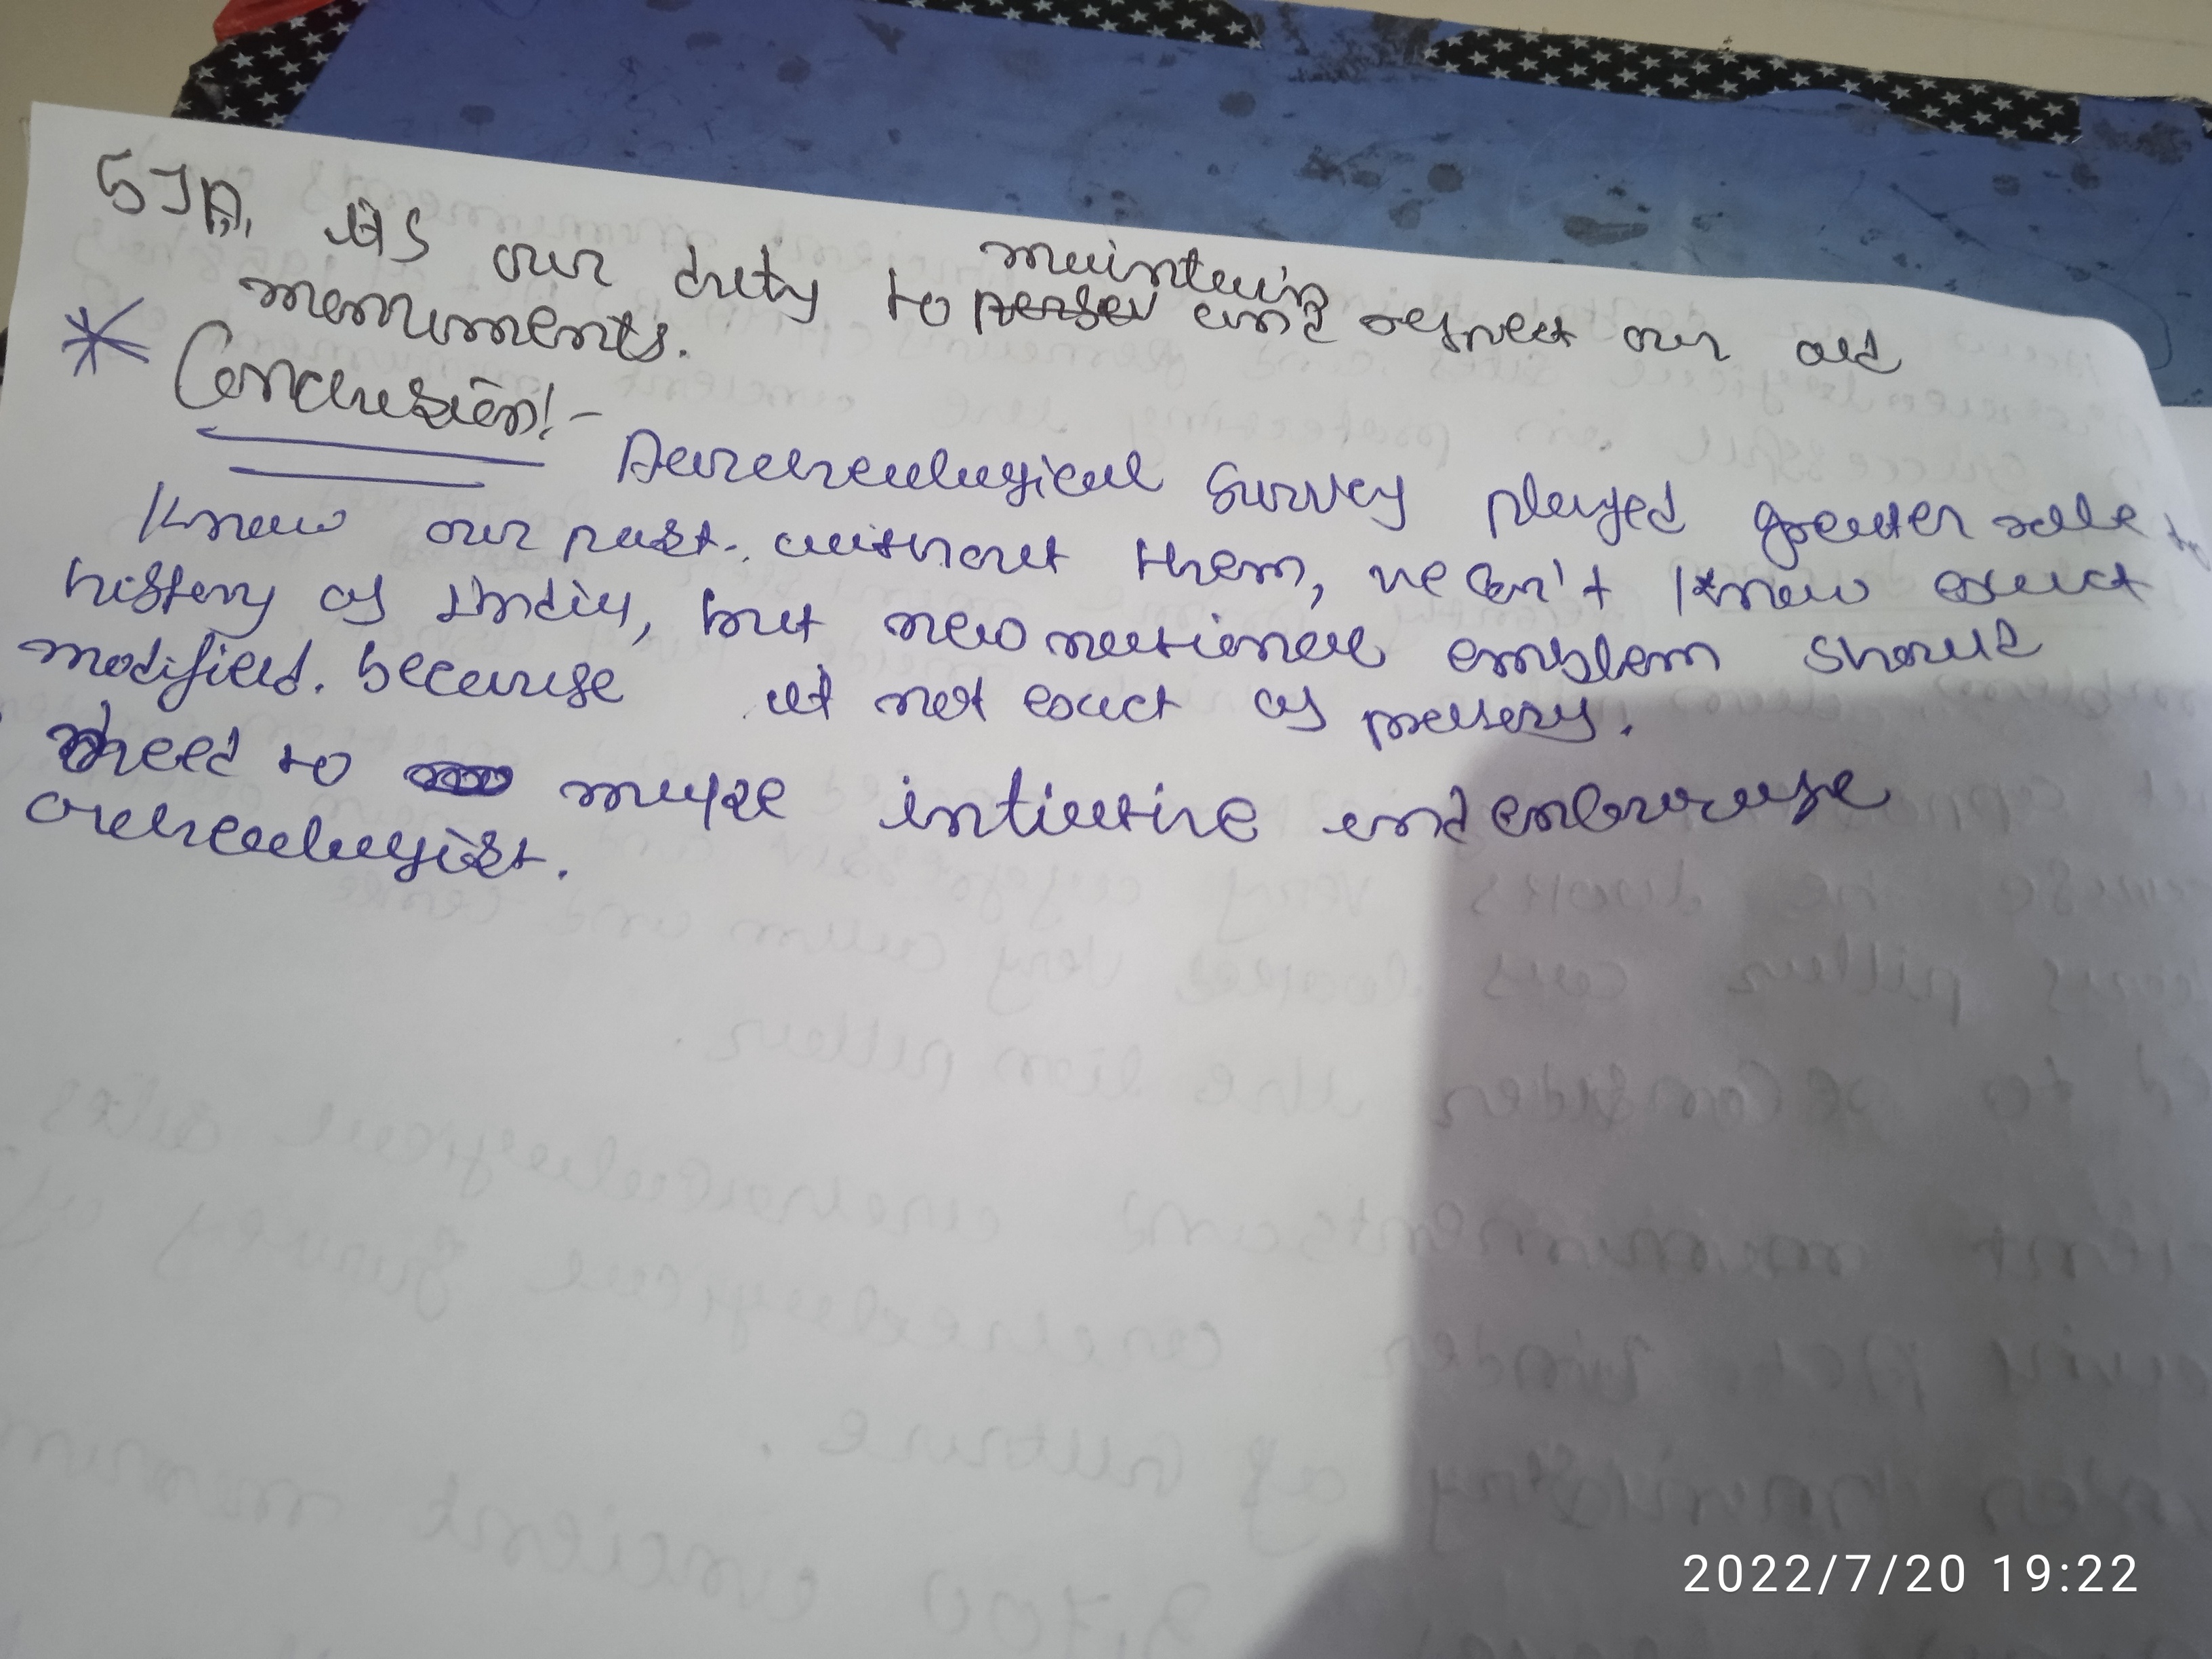 51A, its our duty to maintain and respect our old
monuments.
* Conclusion:-
Aarcheological Survey played greater role to
know our past. without them, we can't know exact
history of India, but new national emblem should
modified. because it not exact of
need to make intiative and encourage
archeologist.
2022/7/20 19:22